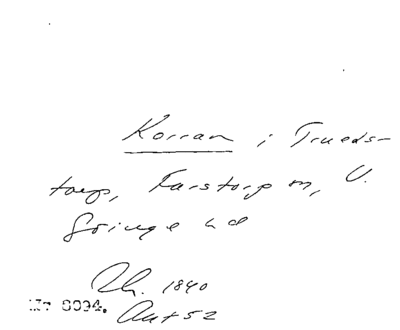 Korran i Trueds-
torp, Farstorp sn, V.
Göinge hd
1840
Nr 8094. Aut 52